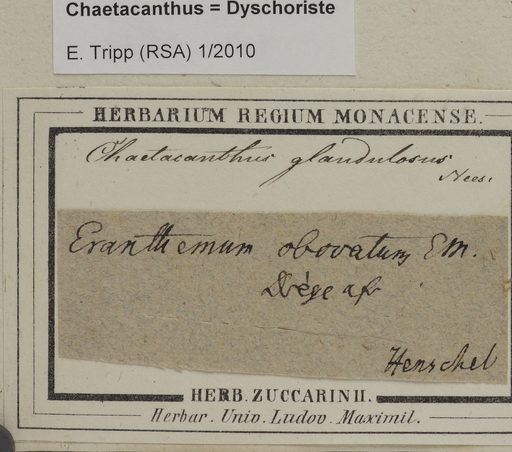 Chaetacanthus = Dyschoriste
E. Tripp (RSA) 1/2010
HERBARIUM REGIUM MONACENSE.
Chaetacanthus glandulosus
Nees.
Eranthemum obovatum EM.
Drège afr
Henschel
HERB. ZUCCARINII.
Herbar. Univ. Ludov. Maximil.